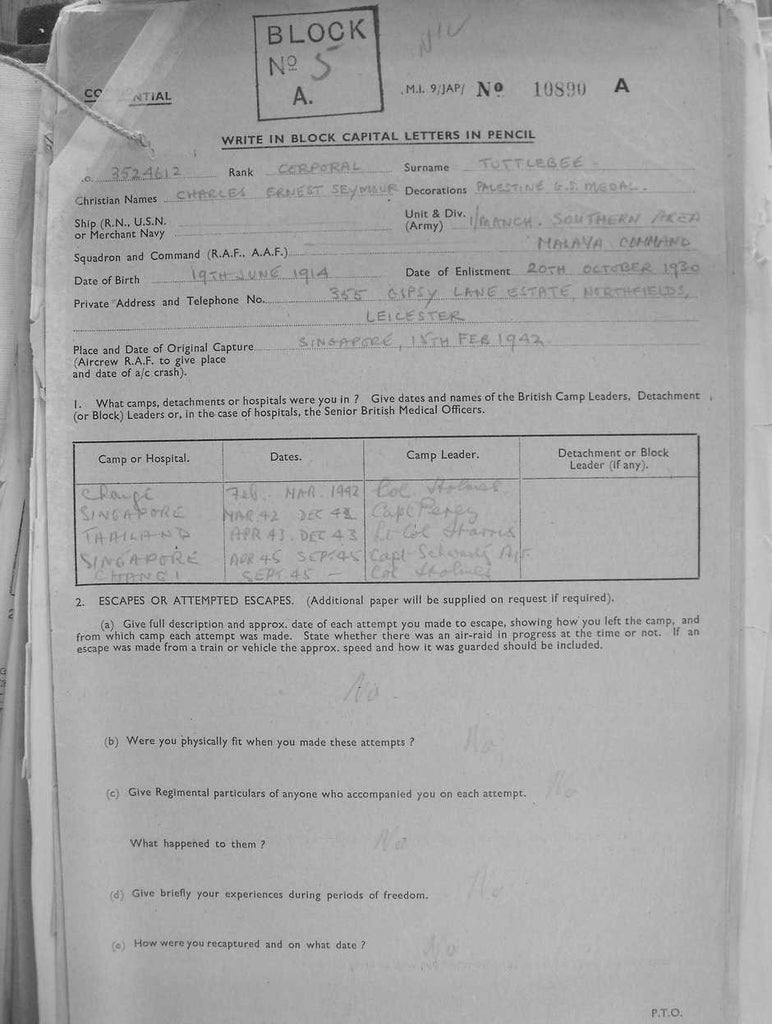 BLOCK
No 5
A.
NTIAL
M.I. 9/JAP/ No 10890 A
WRITE IN BLOCK CAPITAL LETTERS IN PENCIL
3524612 Rank CORPORAL Surname TUTTLEBEE
Christian Names CHARLES ERNEST SEYMOUR Decorations PALESTINE G.S. MEDAL.
Ship (R.N., U.S.N. or Merchant Navy
Unit & Div. (Army) 1/MANCH. SOUTHERN AREA
MALAYA COMMAND
Squadron and Command (R.A.F., A.A.F.)
Date of Birth 19TH JUNE 1914 Date of Enlistment 20TH OCTOBER 1930
Private Address and Telephone No. 355 GIPSY LANE ESTATE, NORTHFIELDS,
LEICESTER
Place and Date of Original Capture SINGAPORE, 15TH FEB 1942.
(Aircrew R.A.F. to give place
and date of a/c crash).
1. What camps, detachments or hospitals were you in ? Give dates and names of the British Camp Leaders, Detachment
(or Block) Leaders or, in the case of hospitals, the Senior British Medical Officers.
Camp or Hospital. Dates. Camp Leader. Detachment or Block
Leader (if any).
Changi Feb. MAR. 1942 Col. Holmes.
SINGAPORE MAR 42 DEC 42 Capt Percy
THAILAND APR 43. DEC 43 Lt-Col Harris
SINGAPORE APR 45 SEPT 45 Capt
CHANGI SEPT 45 - Col Holmes
2. ESCAPES OR ATTEMPTED ESCAPES. (Additional paper will be supplied on request if required).
(a) Give full description and approx. date of each attempt you made to escape, showing how you left the camp, and
from which camp each attempt was made. State whether there was an air-raid in progress at the time or not. If an
escape was made from a train or vehicle the approx. speed and how it was guarded should be included.
No.
(b) Were you physically fit when you made these attempts ? No
(c) Give Regimental particulars of anyone who accompanied you on each attempt. No
What happened to them ? No
(d) Give briefly your experiences during periods of freedom. No
(e) How were you recaptured and on what date ? No
P.T.O.